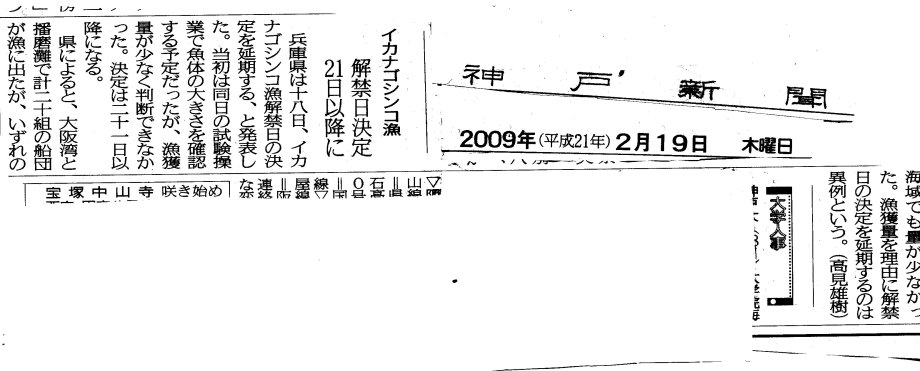 神戸新聞
2009年(平成21年)2月19日 木曜日
イカナゴシンコ漁
解禁日決定
21日以降に
兵庫県は十八日、イカ
ナゴシンコ漁解禁日の決
定を延期する、と発表し
た。当初は同日の試験操
業で魚体の大きさを確認
する予定だったが、漁獲
量が少なく判断できなか
った。決定は二十一日以
降になる。
県によると、大阪湾と
播磨灘で計二十組の船団
が漁に出たが、いずれの
海域でも量が少なかっ
た。漁獲量を理由に解禁
日の決定を延期するのは
異例という。(高見雄樹)
大学人事
宝塚中山寺 咲き始め